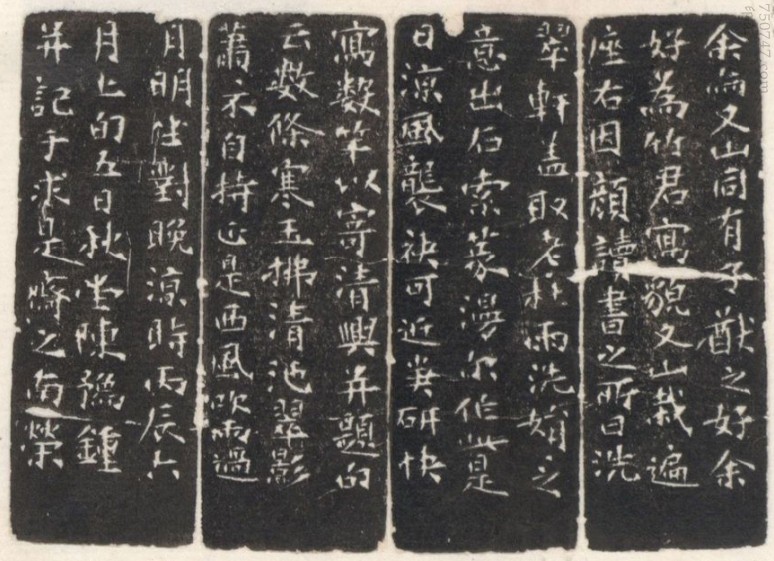 余又山同有子猷之好余
好為竹君寫貌又山栽遍
座右因顏讀書之所曰洗
翠軒蓋取老杜雨洗娟之
意出石索篆漫尔作此是
日涼風襲袂可近研快
寫數竿以寄清興并題的
云數條寒玉拂清池翠影
蕭々不自持正是西風吹雨過
月明對晚涼時丙辰六
月上的五日秋堂陳豫鍾
并記于求是齋之南榮
750747.com